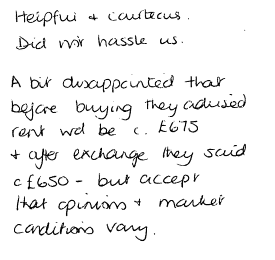 Helpful + courteous.
Did not hassle us.
A bit disappointed that
before buying they advised
rent wd be c. £675
+ after exchange they said
c £650 - but accept
that opinions + market
conditions vary.